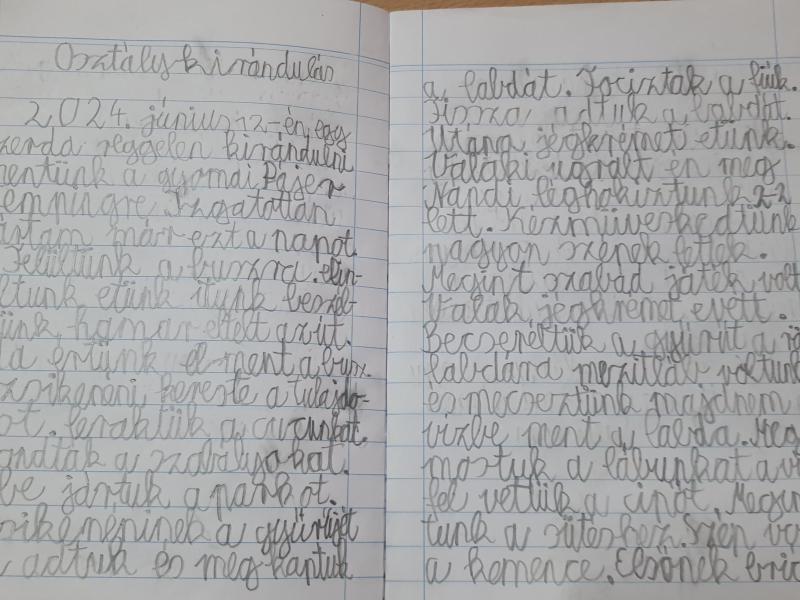 Osztálykirándulás
2024. június 12-én, egy
szerda reggelen kirándulni
mentünk a gyomai Pájer
empingre. Izgatottan
ártam már ezt a napot.
Felültünk a buszra. elin-
ltunk etünk itunk beszél-
ünk, hamar eltelt az út.
a értünk elment a busz.
zsikenéni kereste a tulajdo-
ot. leraktuk a cuccunkat.
ondták a szabályokat.
be jártuk a parkot.
sike néninek a gyűrűjét
adtuk és megkaptuk
a labdát. Fociztak a fiúk.
Vissza adtuk a labdát.
Utána jégkrémet etünk.
Valaki ugrált én meg
Nándi léghokiztunk 22
lett. Kézműveskedtünk
nagyon szépek lettek.
Megint szabad játék volt
Valaki jégkrémet evett.
Becseréltük a gyűrűt a
labdára mezitláb voltunk
és mecseztünk majdnem
vízbe ment a labda. Meg
mostuk a lábunkat
fel vettük a cipőt. Megin
tunk a sütéshez. Szép vo
a kemence. Elsőnek